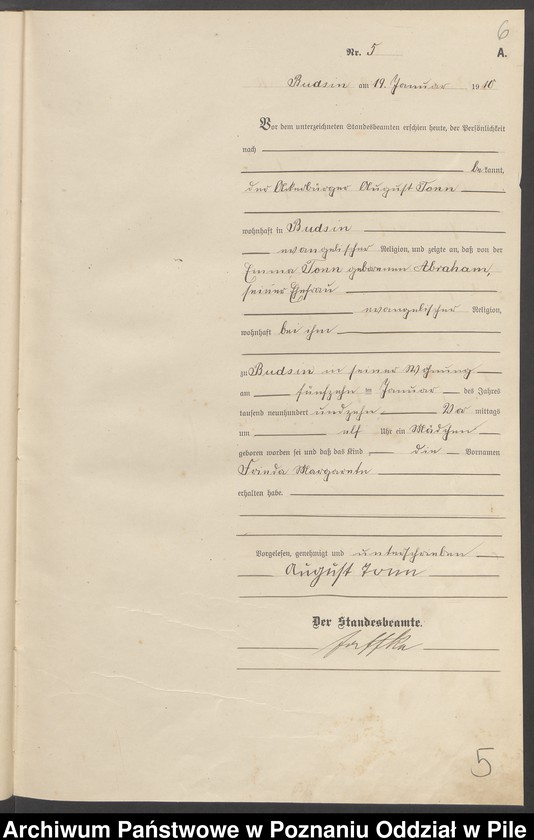 6
Nr. 5
A.
Budsin am 19. Januar 1910
Vor dem unterzeichneten Standesbeamten erschien heute, der Persönlichkeit
nach
be kannt,
der Ackerbürger August Tonn
wohnhaft in Budsin
evangelischer Religion, und zeigte an, daß von der
Emma Tonn geborenen Abraham,
seiner Ehefrau
evangelischer Religion,
wohnhaft bei ihm
zu Budsin in seiner Wohnung
am fünfzehn ten Januar des Jahres
tausend neunhundert und zehn Vor mittags
um elf Uhr ein Mädchen
geboren worden sei und daß das Kind die Vornamen
Frieda Margarete
erhalten habe.
Vorgelesen, genehmigt und unterschrieben
August Tonn
Der Standesbeamte.
5
Archiwum Państwowe w Poznaniu Oddział w Pile